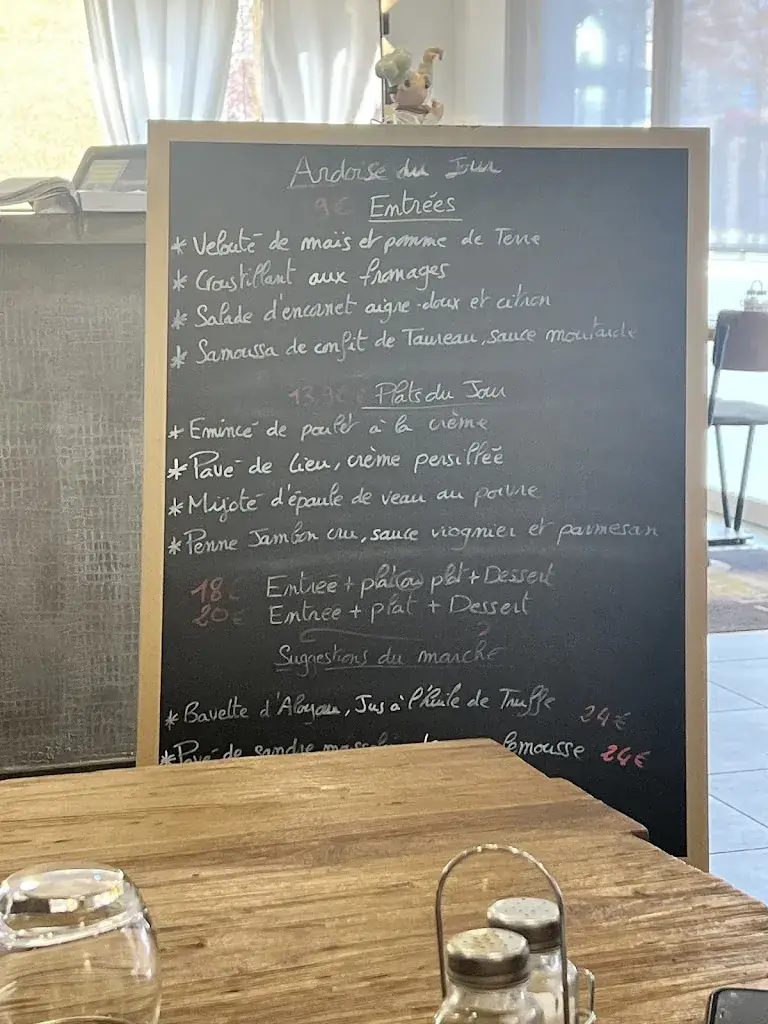 Ardoise du Jour
9€ Entrées
* Velouté de maïs et pomme de Terre
* Croustillant aux fromages
* Salade d'encornet aigre-doux et citron
* Samoussa de confit de Taureau, sauce moutarde
Plats du Jour
* Emincé de poulet à la crème
* Pavé de Lieu, crème persillée
* Mijoté d'épaule de veau au poivre
* Penne Jambon cru, sauce viognier et parmesan
18€ Entrée + plat ou plat + Dessert
20€ Entrée + plat + Dessert
Suggestions du marché
* Bavette d'Aloyau, Jus à l'huile de Truffe 24€
* Pavé de sandre 24€